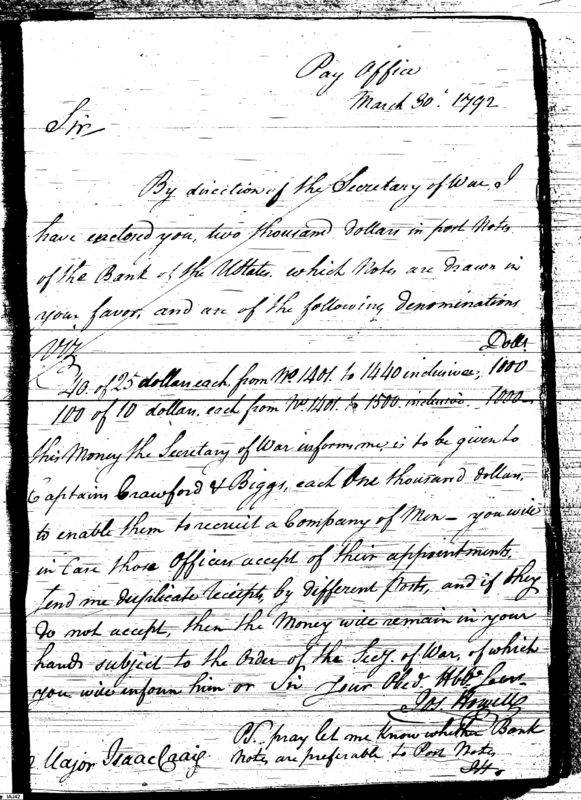 Pay Office
March 30th 1792
Sir
By direction of the Secretary of War, I
have enclosed you, two thousand dollars in post Notes
of the Bank of the UStates. which Notes are drawn in
your favor, and are of the following denominations
Viz
Dolls
40. of 25 dollars each from No. 1401. to 1440 inclusive, 1000
100 of 10 dollars, each from No. 1401. to 1500. inclusive. 1000
this Money the Secretary of War informs me, is to be given to
Captains Crawford & Biggs, each One thousand dollars,
to enable them to recruit a Company of Men – you will
in Case those Officers accept of their appointments,
send me duplicate receipts, by different Posts, and if they
do not accept, then the Money will remain in your
hands subject to the Order of the Secy. of War, of which
you will inform him or Sir Your Obed. Hbb. Serv.
Jos Howell
PS. pray let me know whether Bank
Major Isaac Craig
Notes are preferable to Post Notes
JH.
IAJ42